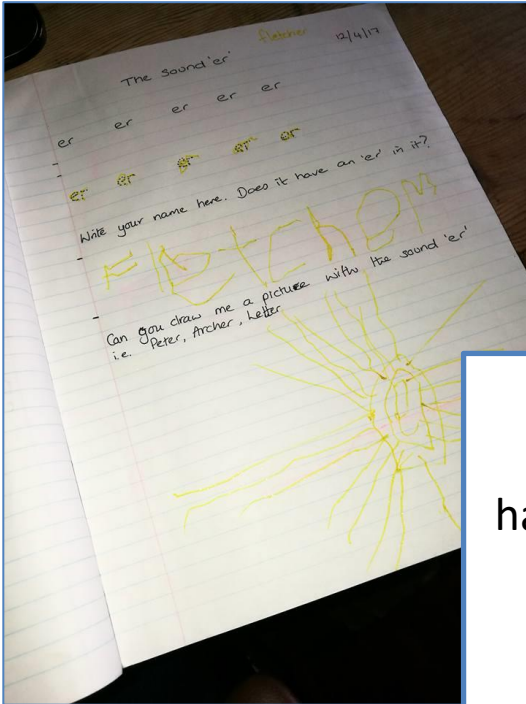 Fletcher 12/4/17
The sound 'er'
er er er er er
er er er er er
Write your name here. Does it have an 'er' in it?
Fletcher
Can you draw me a picture with the sound 'er'
i.e. Peter, Archer, Letter
ha